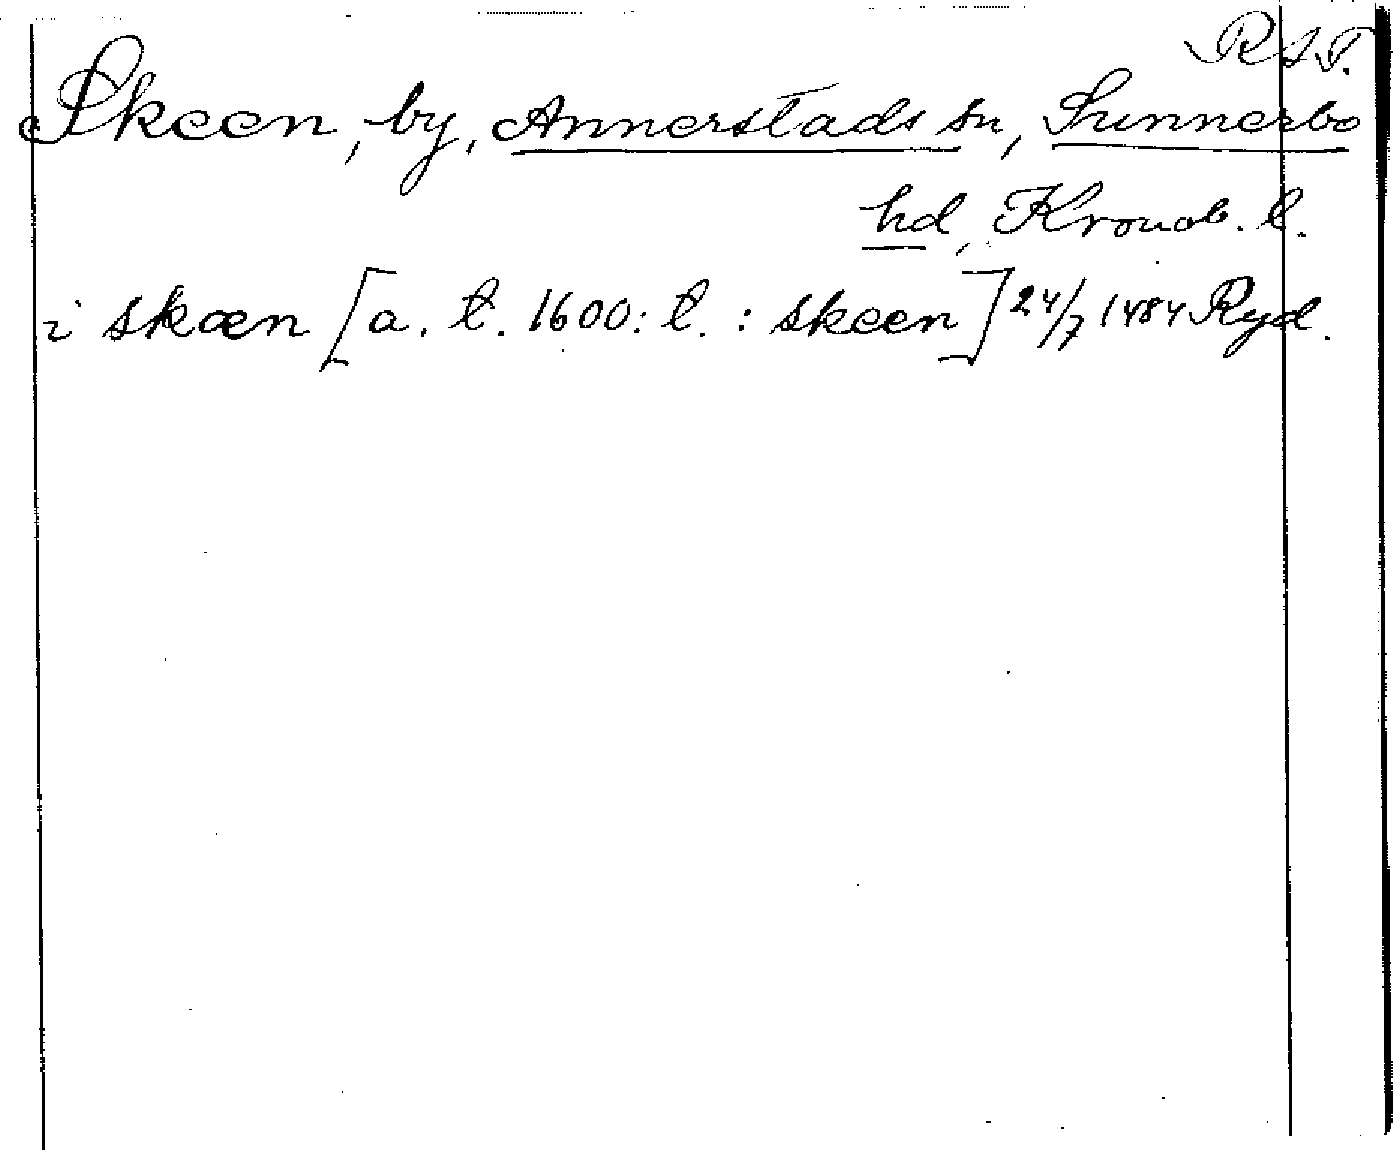 R S T.
Skeen, by, Annerstads sn, Sunnerbo
hd, Kronob. l.
i skæn [a. t. 1600: t. : skeen] 24/7 1484 Ryd.